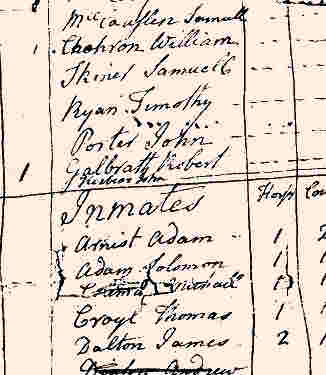 McCauslen Samuell
1 Chohron William
Skiner Samuell
Ryan Timothy
Porter John
1 Galbrath Robert
John
Inmates Hors Cow
Arnist Adam 1 2
Adam Solomon 1 1
Michael 1
Croyl Thomas 1 1
Dalton James 2 1
Andrew